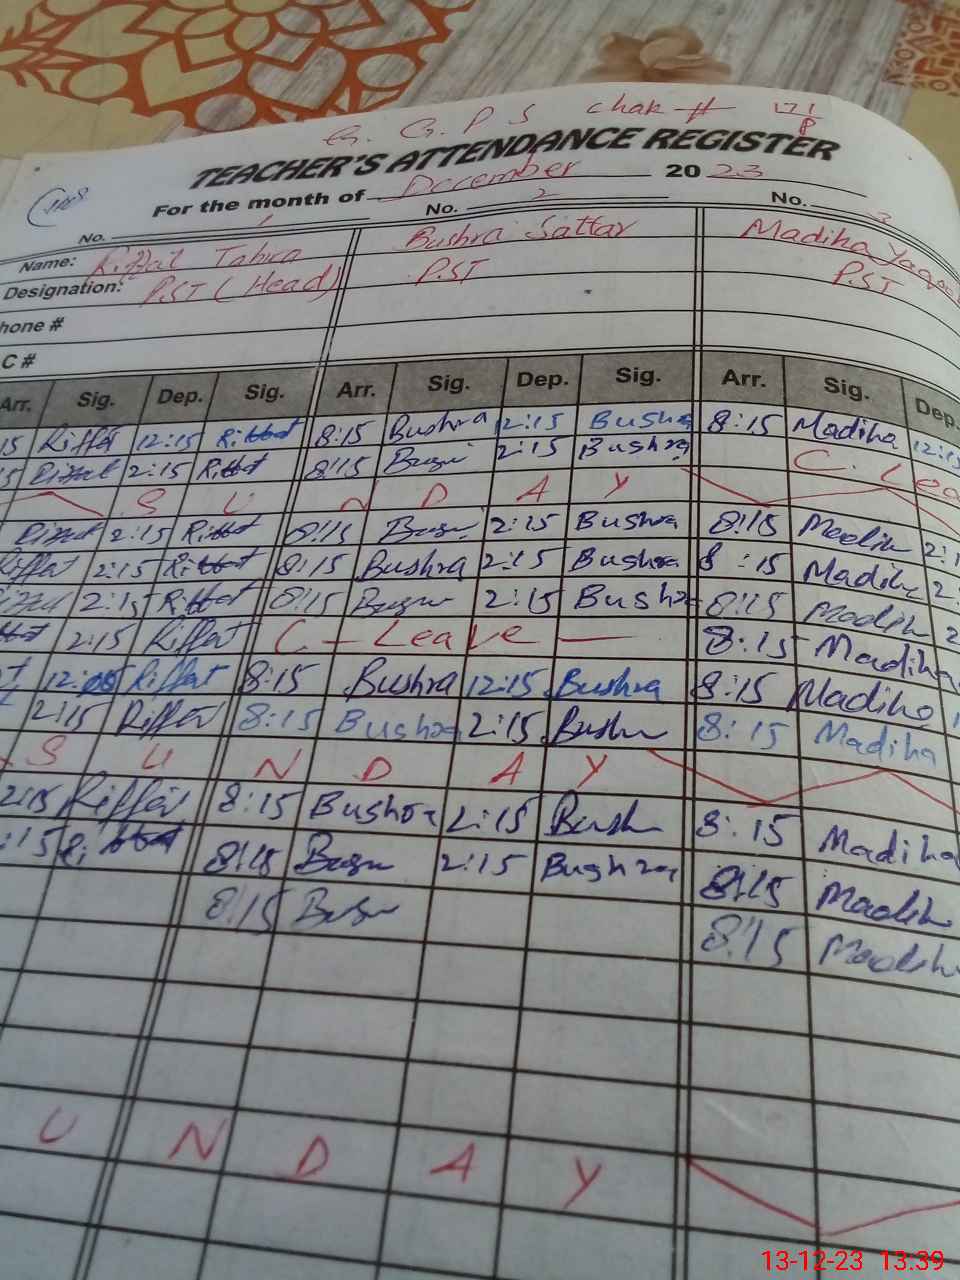 G. G. P S chak # 171/8
TEACHER'S ATTENDANCE REGISTER
For the month of December 2023
No. 1 No. 2 No. 3
Name: Riffat Tahira Bushra Sattar Madiha
Designation: P.S.T (Head) P.S.T P.S.T
hone #
C #
Arr. Sig. Dep. Sig. Arr. Sig. Dep. Sig. Arr. Sig. Dep.
15 Riffat 12:15 Riffat 8:15 Bushra 12:15 Bushra 8:15 Madiha 12:15
Riffat 2:15 Riffat 8:15 2:15 Bushra C. Lea
S U N D A Y
Riffat 2:15 Riffat 8:15 2:15 Bushra 8:15 Madih 2:1
Riffat 2:15 Riffat 8:15 Bushra 2:15 Bushra 8:15 Madih 2:
2:15 Riffat 8:15 2:15 Bushra 8:15 Madih 2
2:15 Riffat C - Leave - 8:15 Madiha
12:05 Riffat 8:15 Bushra 12:15 Bushra 8:15 Madiha
2:15 Riffat 8:15 Bushra 2:15 Bushra 8:15 Madiha
S U N D A Y
2:15 Riffat 8:15 Bushra 2:15 Bush 8:15 Madiha
:15 8:15 2:15 Bushra 8:15 Madih
8:15 8:15 Madiha
U N D A Y
13-12-23 13.39